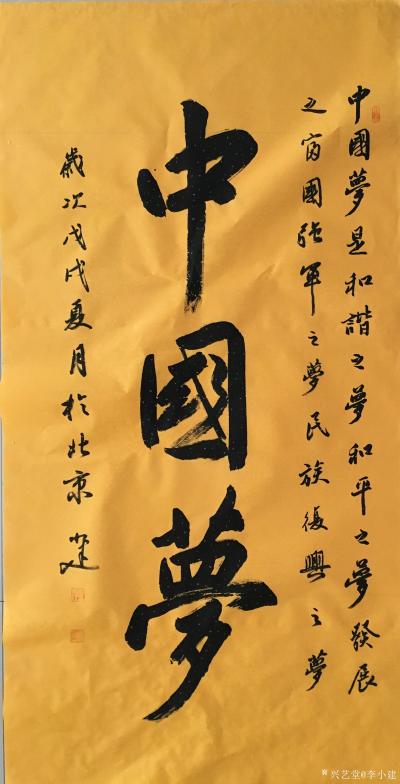 中國夢是和諧之夢和平之夢發展
之富國強軍之夢民族復興之夢
中國夢
歲次戊戌夏月於北京 小建
兴艺堂@李小建